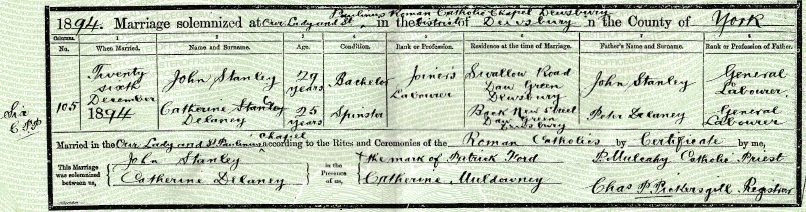 1894. Marriage solemnized at Our Lady and St. Paulinus Roman Catholic Chapel Dewsbury in the District of Dewsbury in the County of York
Columns. 1 2 3 4 5 6 7 8
No. When Married. Name and Surname. Age. Condition. Rank or Profession. Residence at the time of Marriage. Father's Name and Surname. Rank or Profession of Father.
105 Twenty sixth December 1894
John Stanley 29 years Bachelor Joiner's Labourer Swallow Road Daw Green Dewsbury John Stanley General Labourer
Catherine Delaney 25 years Spinster Back New Street Daw Green Dewsbury Peter Delaney General Labourer
Married in the Our Lady and St Paulinus Chapel according to the Rites and Ceremonies of the Roman Catholics by Certificate by me,
This Marriage was solemnized between us, John Stanley Catherine Delaney in the Presence of us, the mark of Patrick Ford Catherine Muldowney
P. Mulcahy Catholic Priest
Chas P. Pickersgill Registrar